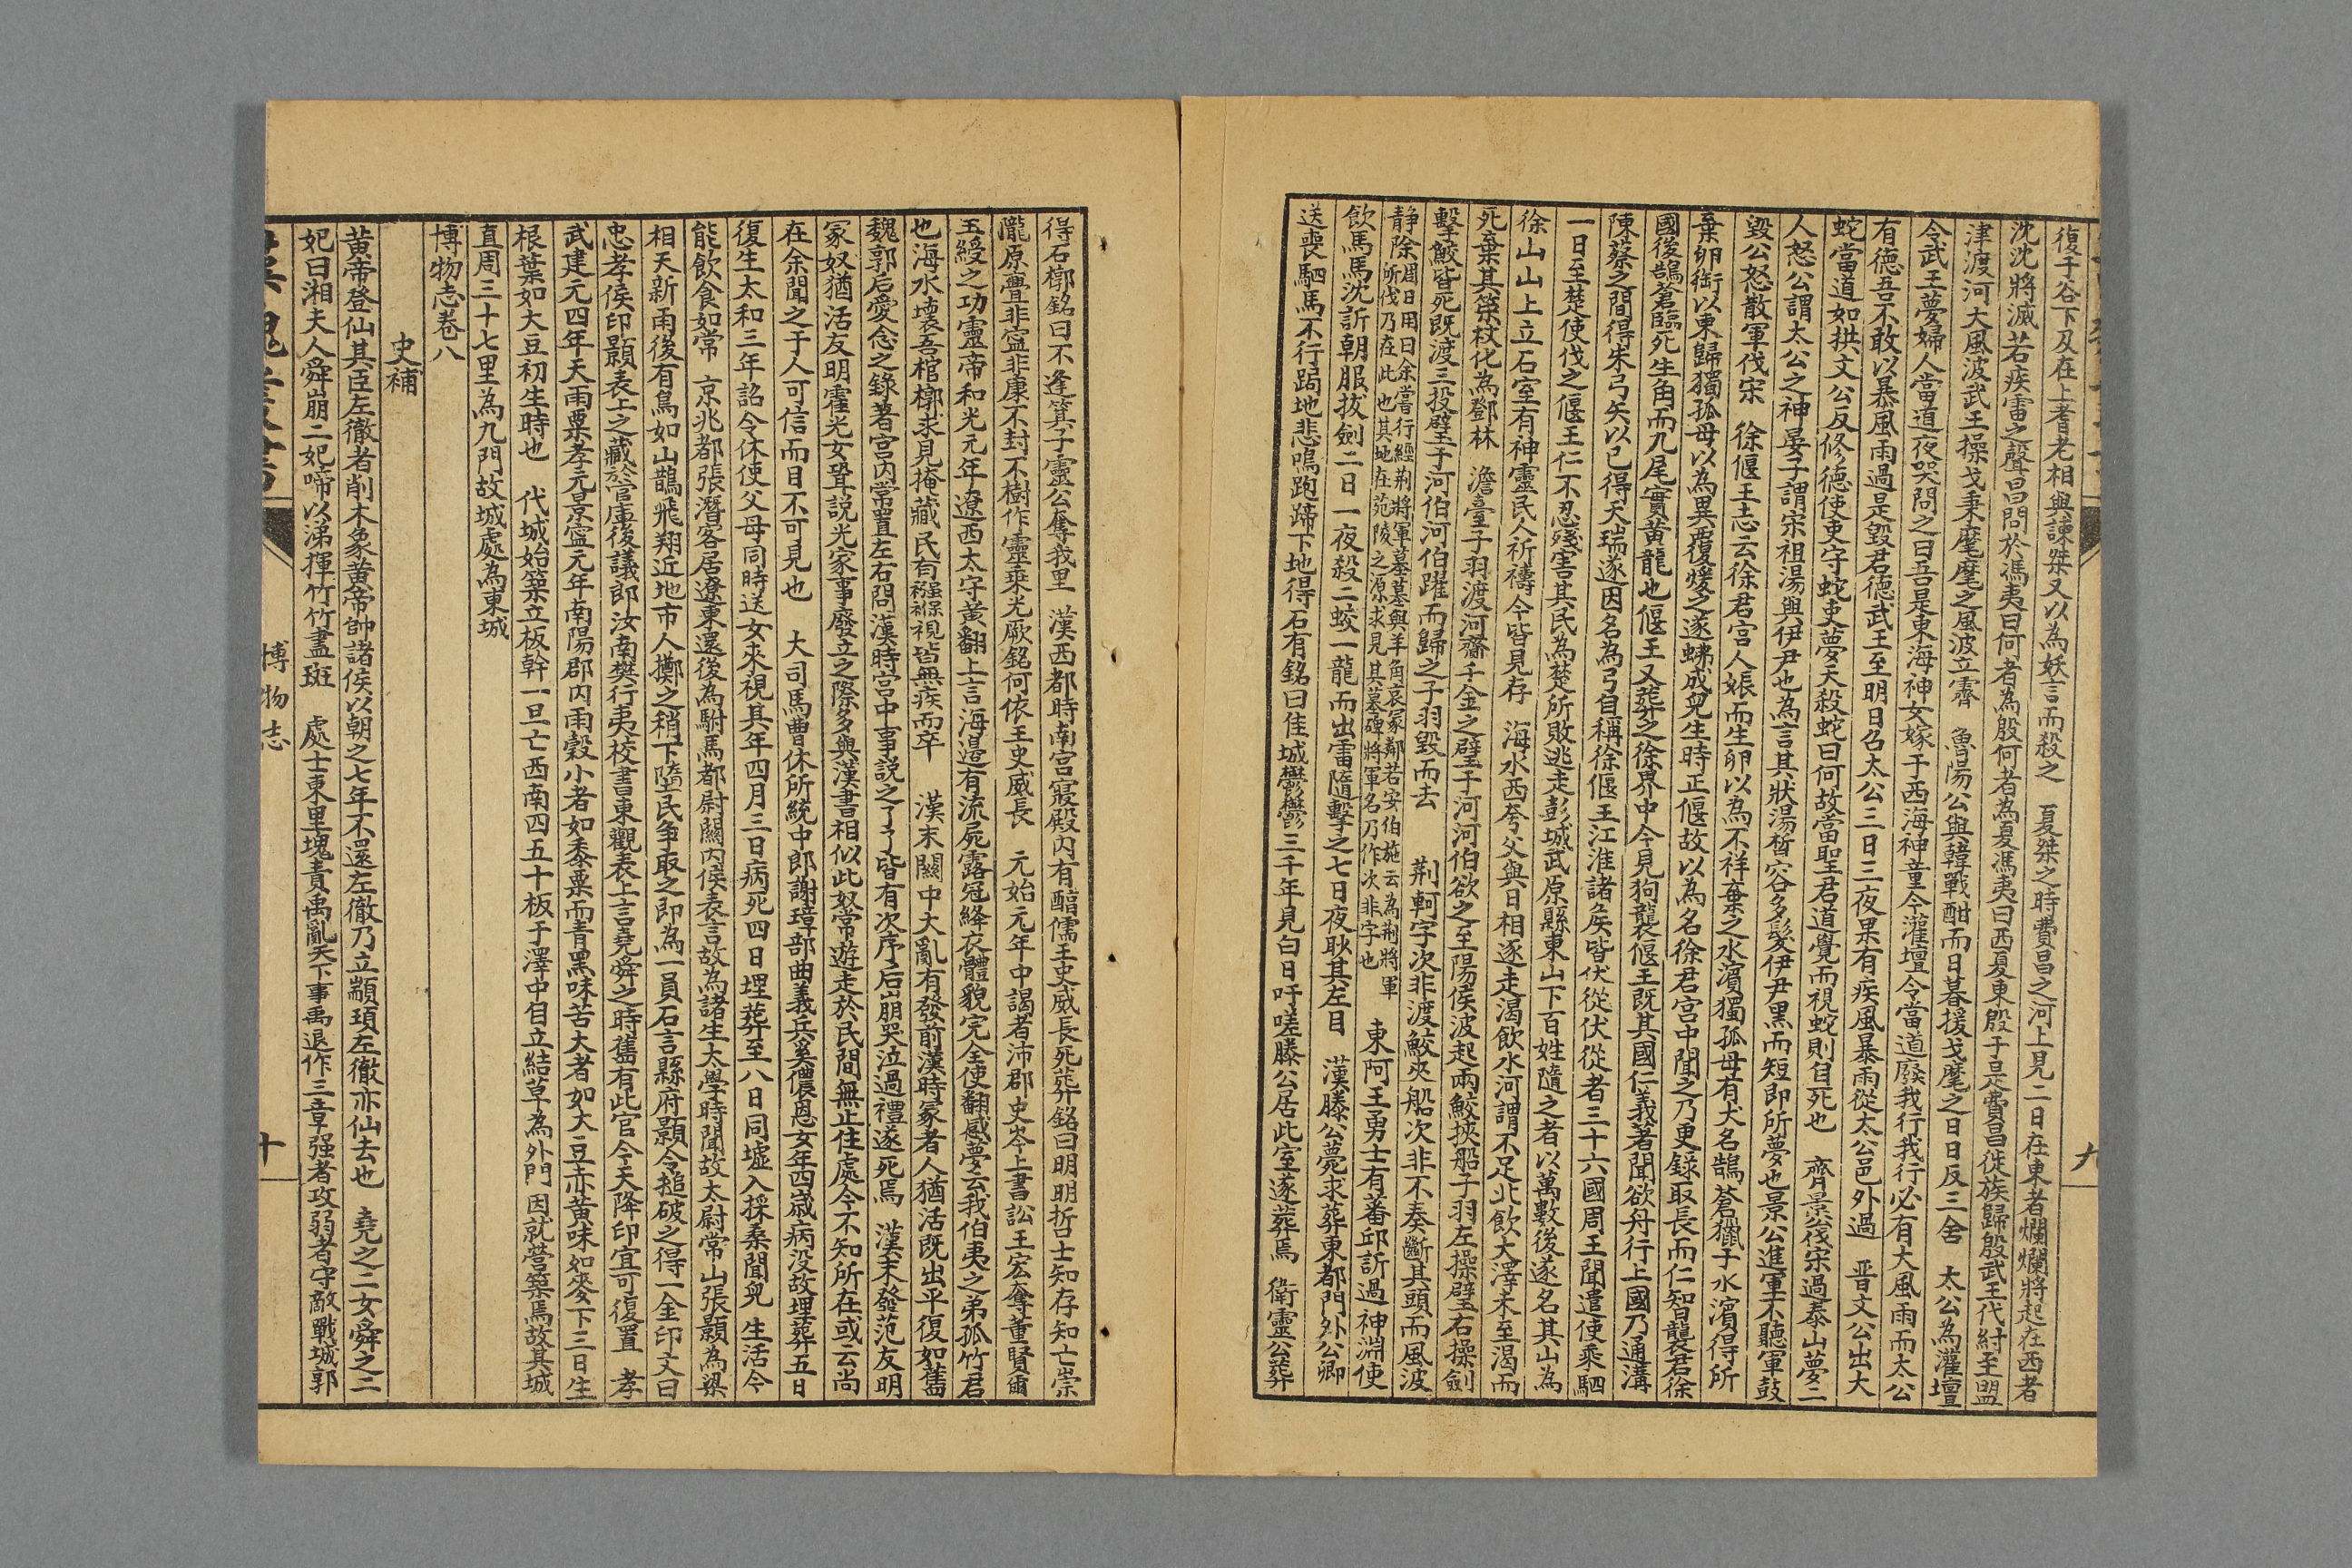 九
復于谷下及在上耆老相與諫桀又以為妖言而殺之　夏桀之時費昌之河上見二日在東者爛爛將起在西者
沈沈將滅若疾雷之聲昌問於馮夷曰何者為殷何者為夏馮夷曰西夏東殷于是費昌徙族歸殷武王代紂至盟
津渡河大風波武王操戈秉麾麾之風波立霽　魯陽公與韓戰酣而日暮援戈麾之日日反三舍　太公為灌壇
令武王夢婦人當道夜哭問之曰吾是東海神女嫁于西海神童今灌壇令當道廢我行我行必有大風雨而太公
有德吾不敢以暴風雨過是毀君德武王至明日召太公三日三夜果有疾風暴雨從太公邑外過　晋文公出大
蛇當道如拱文公反修德使吏守蛇吏夢天殺蛇曰何故當聖君道覺而視蛇則自死也　齊景公伐宋過泰山夢二
人怒公謂太公之神晏子謂宋祖湯與伊尹也為言其狀湯晳容多髮伊尹黑而短即所夢也景公進軍不聽軍鼓
毀公怒散軍伐宋　徐偃王志云徐君宮人娠而生卵以為不祥棄之水濱獨孤母有犬名鵠蒼獵于水濱得所
棄卵銜以東歸獨孤母以為異覆煖之遂𧊲成兒生時正偃故以為名徐君宮中聞之乃更錄取長而仁智襲君徐
國後鵠蒼臨死生角而九尾實黃龍也偃王又葬之徐界中今見狗襲偃王既其國仁義著聞欲舟行上國乃通溝
陳蔡之間得朱弓矢以已得天瑞遂因名為弓自稱徐偃王江淮諸侯皆伏從伏從者三十六國周王聞遣使乘駟
一日至楚使伐之偃王仁不忍殘害其民為楚所敗逃走彭城武原縣東山下百姓隨之者以萬數後遂名其山為
徐山山上立石室有神靈民人祈禱今皆見存　海水西夸父與日相逐走渴飲水河謂不足北飲大澤未至渴而
死棄其策杖化為鄧林　澹臺子羽渡河齎千金之璧于河河伯欲之至陽侯波起兩鮫挾船子羽左操璧右操劍
擊鮫皆死既渡三投璧于河伯河伯躍而歸之子羽毀而去　　荆軻字次非渡鮫夾船次非不奏斷其頭而風波
静除周日用曰余嘗行經荆將軍墓墓與羊角哀冢鄰若安伯施云為荆將軍所伐乃在此也其地在苑陵之源求見其墓碑將軍名乃作次非字也　東阿王勇士有蕃邱訢過神淵使
飲馬馬沈訢朝服拔劍二日一夜殺二蛟一龍而出雷隨擊之七日夜耿其左目　漢滕公薨求葬東都門外公卿
送喪駟馬不行跼地悲鳴跑蹄下地得石有銘曰佳城鬱鬱三千年見白日吁嗟滕公居此室遂葬焉　衛靈公葬
得石槨銘曰不逢箕子靈公奪我里　漢西都時南宮寢殿內有醕儒王史威長死葬銘曰明明哲士知存知亡崇
隴原亹非寧非康不封不樹作靈乘光厥銘何依王史威長　元始元年中謁者沛郡史岑上書訟王宏奪董賢璽
玉綬之功靈帝和光元年遼西太守黃翻上言海邊有流屍露冠絳衣體貌完全使翻感夢云我伯夷之弟孤竹君
也海水壞吾棺槨求見掩藏民有襁褓視皆無疾而卒　漢末關中大亂有發前漢時冢者人猶活既出平復如舊
魏郭后愛念之錄著宮內常置左右問漢時宮中事說之了了皆有次序后崩哭泣過禮遂死焉　漢末發范友明
冢奴猶活友明霍光女聟説光家事廢立之際多與漢書相似此奴常遊走於民間無止住處今不知所在或云尚
在余聞之于人可信而目不可見也　大司馬曹休所統中郎謝璋部曲義兵奚儂恩女年四歳病没故埋葬五日
復生太和三年詔令休使父母同時送女來視其年四月三日病死四日埋葬至八日同墟入採桑聞兒生活今
能飲食如常　京兆都張潛客居遼東還後為駙馬都尉關內侯表言故為諸生太學時聞故太尉常山張顥為梁
相天新雨後有鳥如山鵲飛翔近地市人擲之稍下墮民争取之即為一員石言縣府顥令搥破之得一金印文曰
忠孝侯印顥表上之藏於官庫後議郎汝南樊行夷校書東觀表上言堯舜之時舊有此官今天降印宜可復置　孝
武建元四年天雨粟孝元景寧元年南陽郡內雨穀小者如黍粟而青黑味苦大者如大豆赤黃味如麥下三日生
根葉如大豆初生時也　代城始築立板幹一旦亡西南四五十板于澤中自立結草為外門因就營築焉故其城
直周三十七里為九門故城處為東城
博物志卷八
史補
黃帝登仙其臣左徹者削木象黃帝帥諸侯以朝之七年不還左徹乃立顓頊左徹亦仙去也　堯之二女舜之二
妃曰湘夫人舜崩二妃啼以涕揮竹竹盡斑　處士東里塊責禹亂天下事禹退作三章强者攻弱者守敵戰城郭
博物志
十